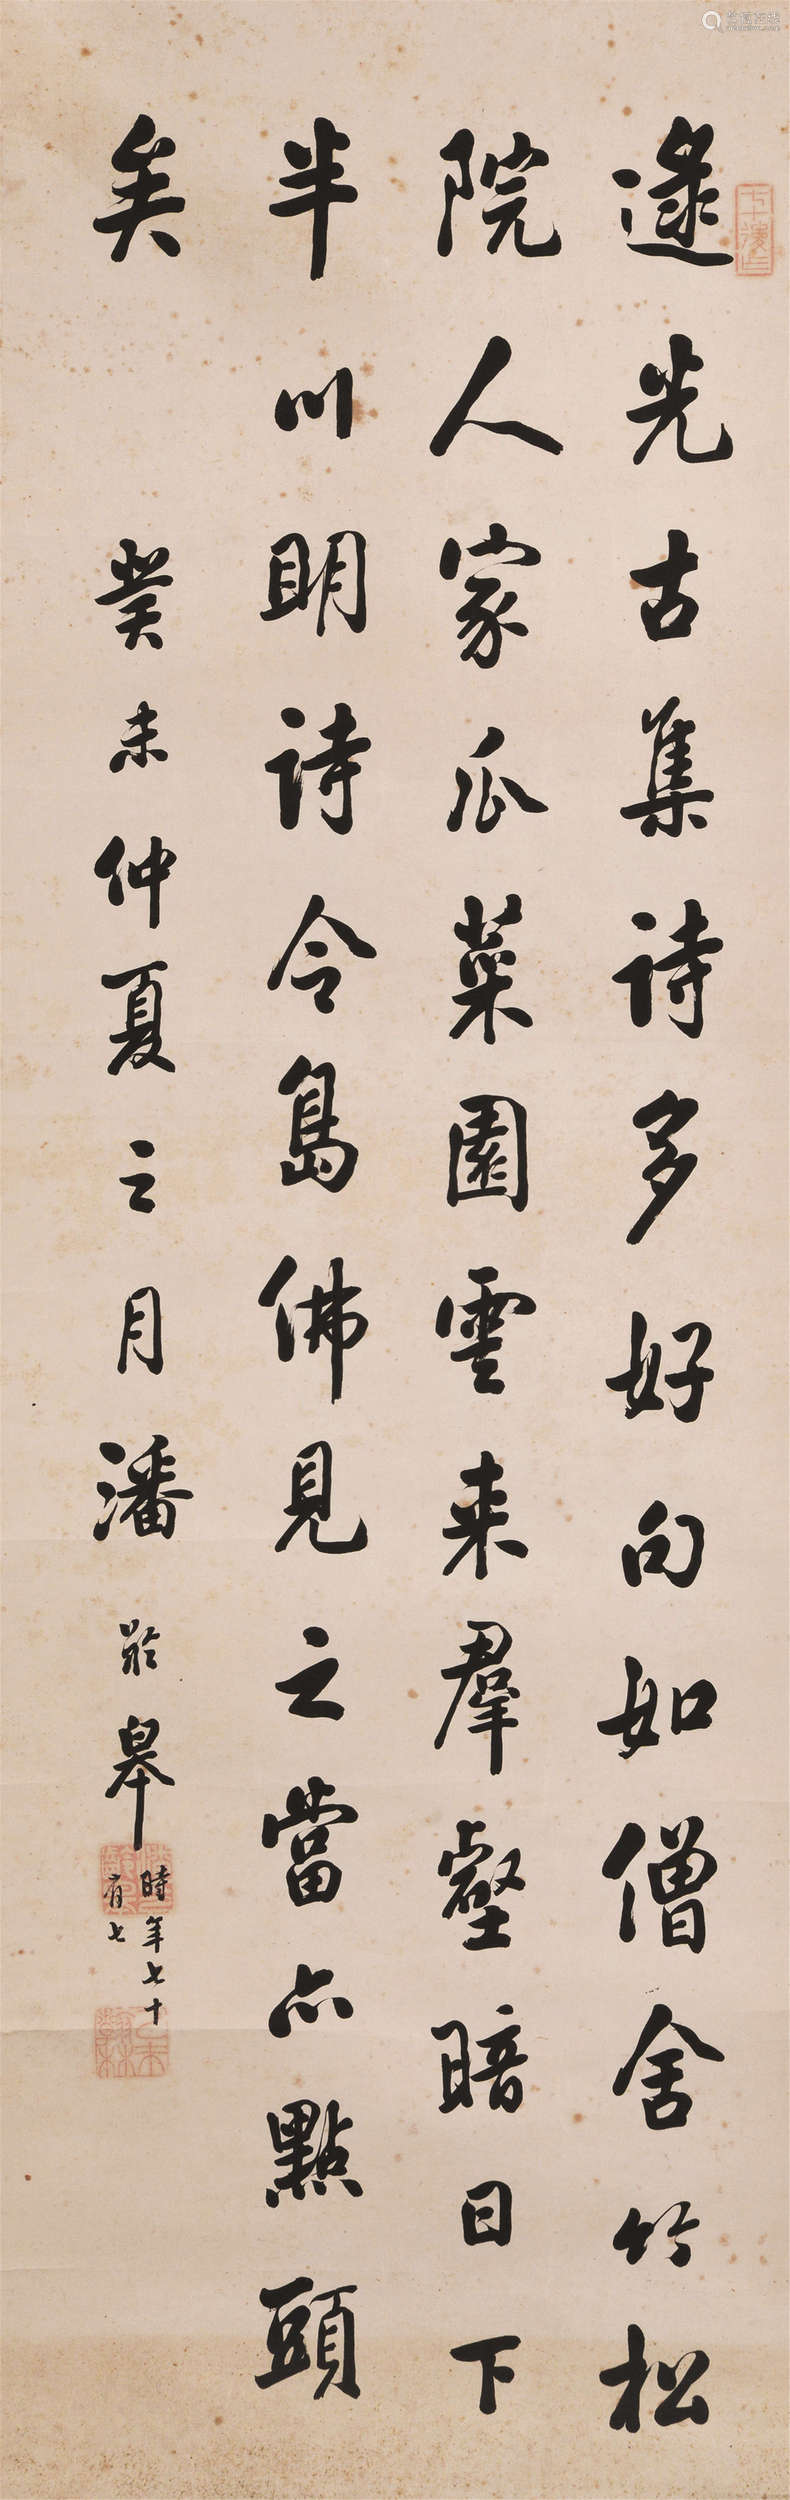 逯光古集詩多好句如僧舍竹松
院人家瓜菜園雲来羣壑暗日下
半川明詩令島佛見之當亦點頭
矣
癸未仲夏之月潘齡皋
時年七十
有七
乙未翰林